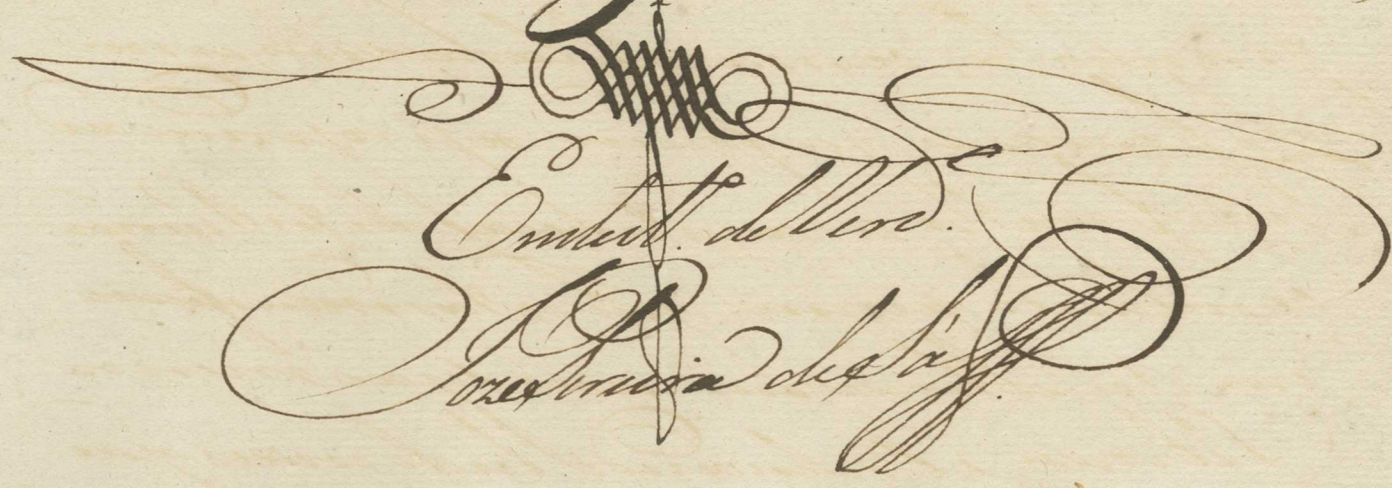 Em test.º de Verd.
Joze Pereira de Sá